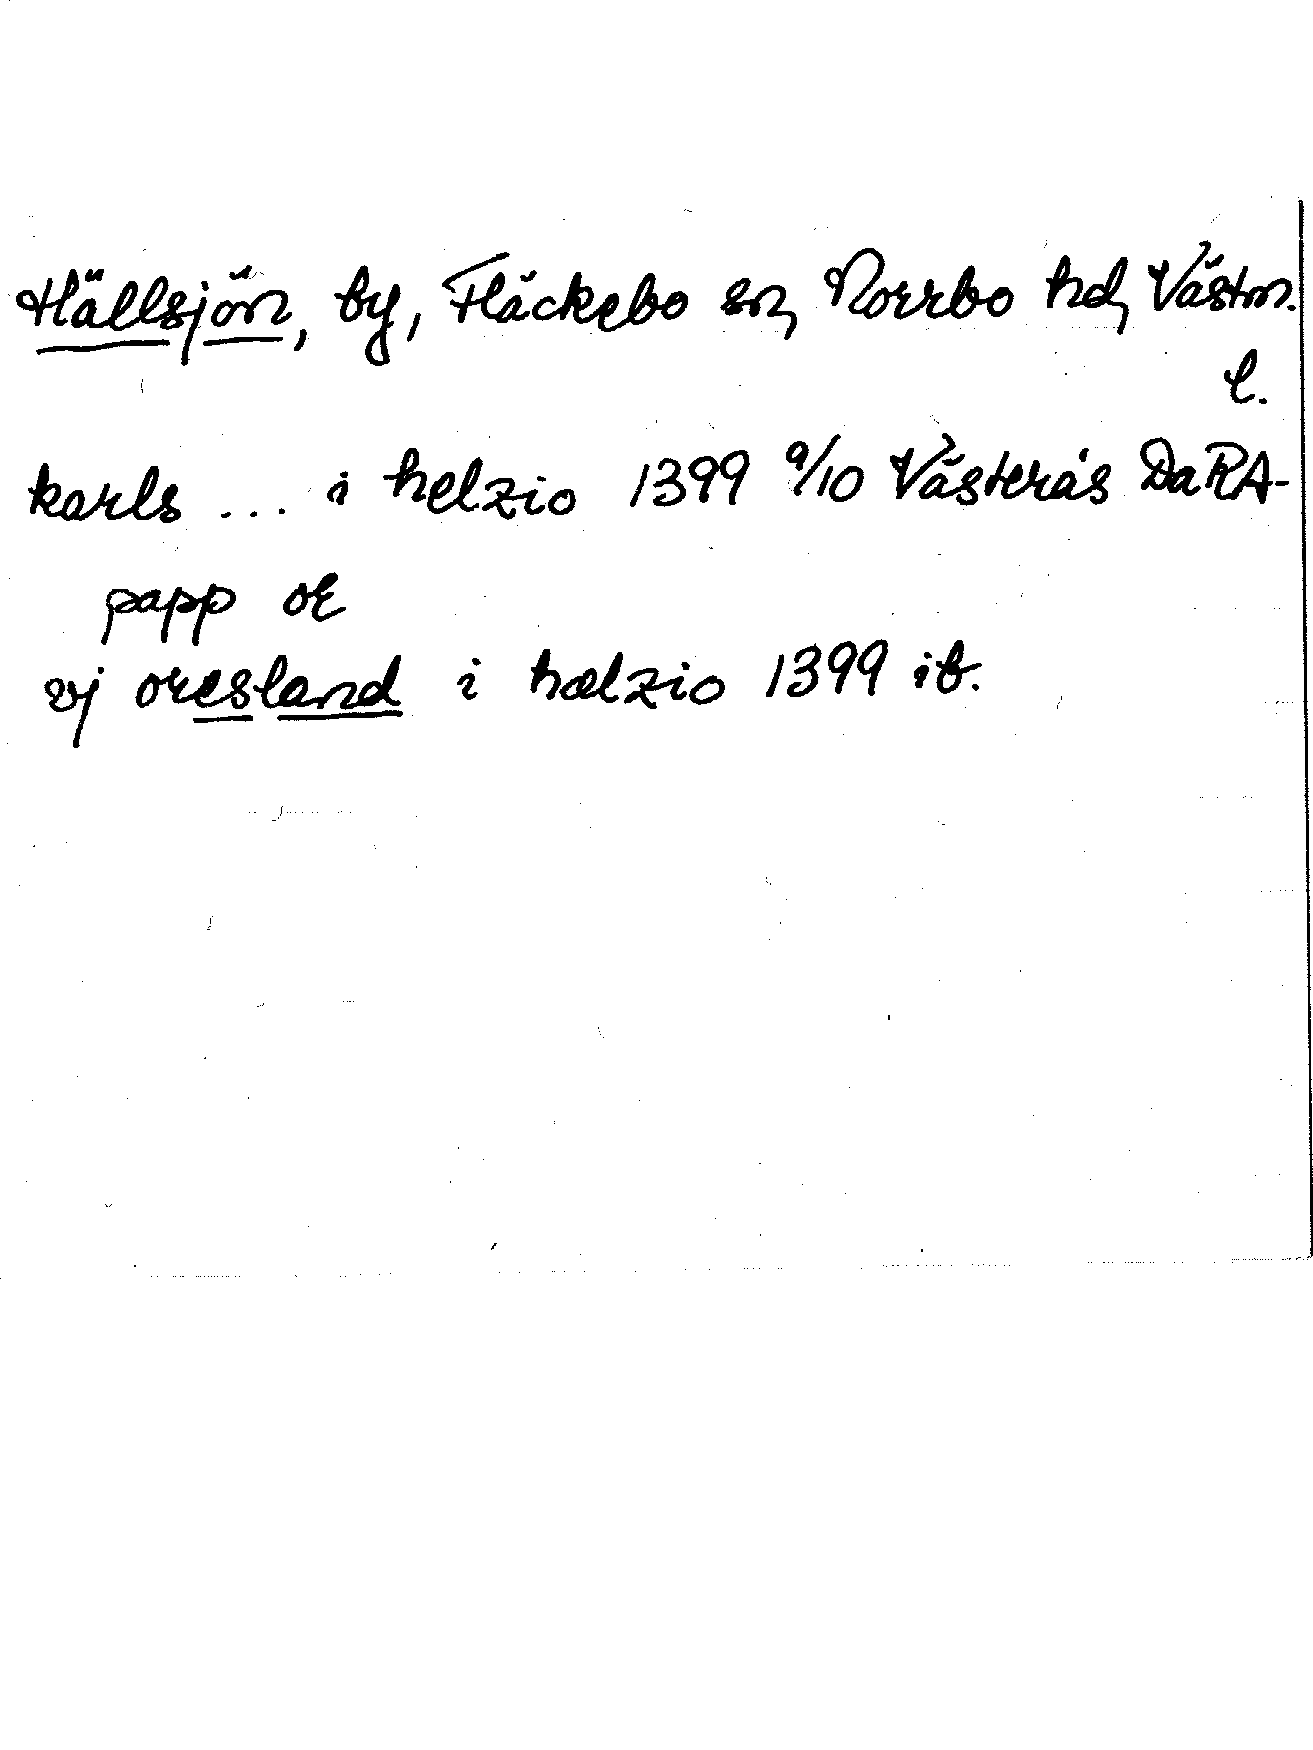 Hällsjön, by, Fläckebo sn, Norrbo hd, Västm.
l.
karls ... i helzio 1399 9/10 Västerås DaRA-
papp or
vj oresland i hælzio 1399 ib.